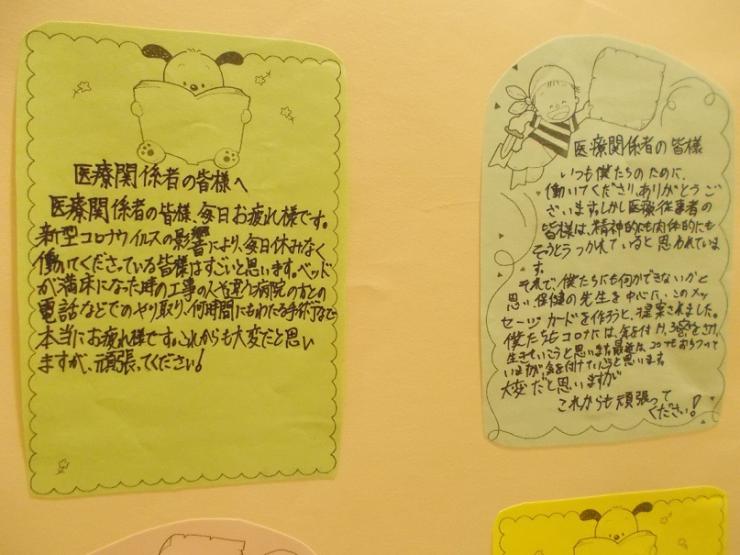 医療関係者の皆様へ
医療関係者の皆様、毎日お疲れ様です。
新型コロナウイルスの影響により、毎日休みなく
働いてくださっている皆様はすごいと思います。ベッド
が満床になった時の工事の人や違う病院の方との
電話などでのやり取り、何時間にもわたる手術など
本当にお疲れ様です。これからも大変だと思い
ますが、頑張ってください!
医療関係者の皆様
いつも僕たちのために、
働いてくださり、ありがとうご
ざいます。しかし医療従事者の
皆様は、精神的にも肉体的にも
そうとうつかれていると思われていま
す。
それで、僕たちにも何かできないかと
思い、保健の先生を中心に、このメッ
セージカードを作ろうと、提案されました。
僕たちもコロナには、気を付け、3密をさけ、
生きていこうと思います。最近は、コロナもおちついて
いますが、気を付けていこうと思います。
大変だと思いますが
これからも頑張って
ください!